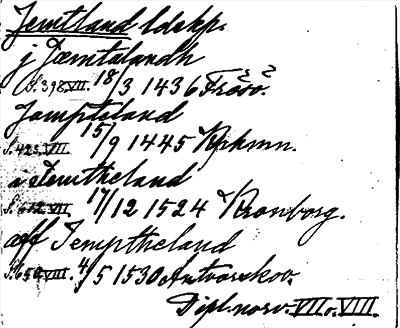 Jemtland ldskp.
j Jæmtalandh
S. 398 VII. 18/3 1436 Frösö.
Jampteland
S. 423 VII. 15/9 1445 Kphmn.
i Jemtheland
VII. 17/12 1524 Kronborg.
aff Jemptheland
S. 650 VIII. 4/5 1530 Antvorskov.
Dipl. norv. VII o. VIII.